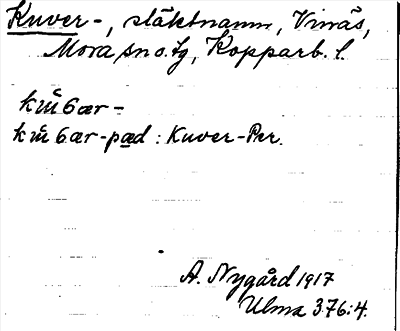 Kuver-, släktnamn, Vinäs,
Mora sn o. tg, Kopparb. l.
Kuver-Per.
A. Nygård 1917
Ulma 376:4.